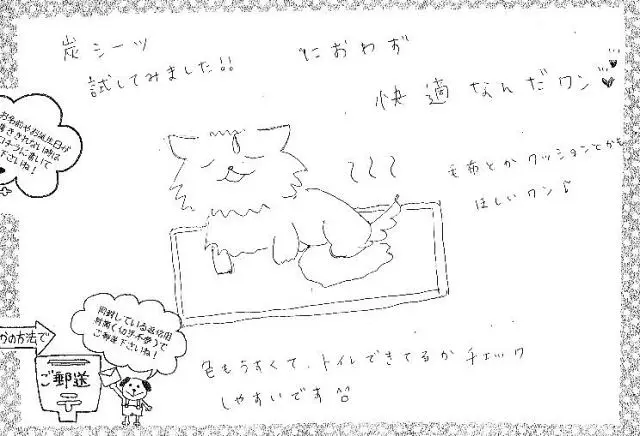 炭シーツ
試してみました!!
におわず
快適なんだワン
毛布とかクッションとかも
ほしいワン♪
お名前やお誕生日が
書ききれない時は
コチラに書いて
下さいね！
の方法で
同封している返信用
封筒（切手不要）で
ご郵送下さいね！
ご郵送
〒
色もうすくて、トイレできてるかチェック
しやすいです